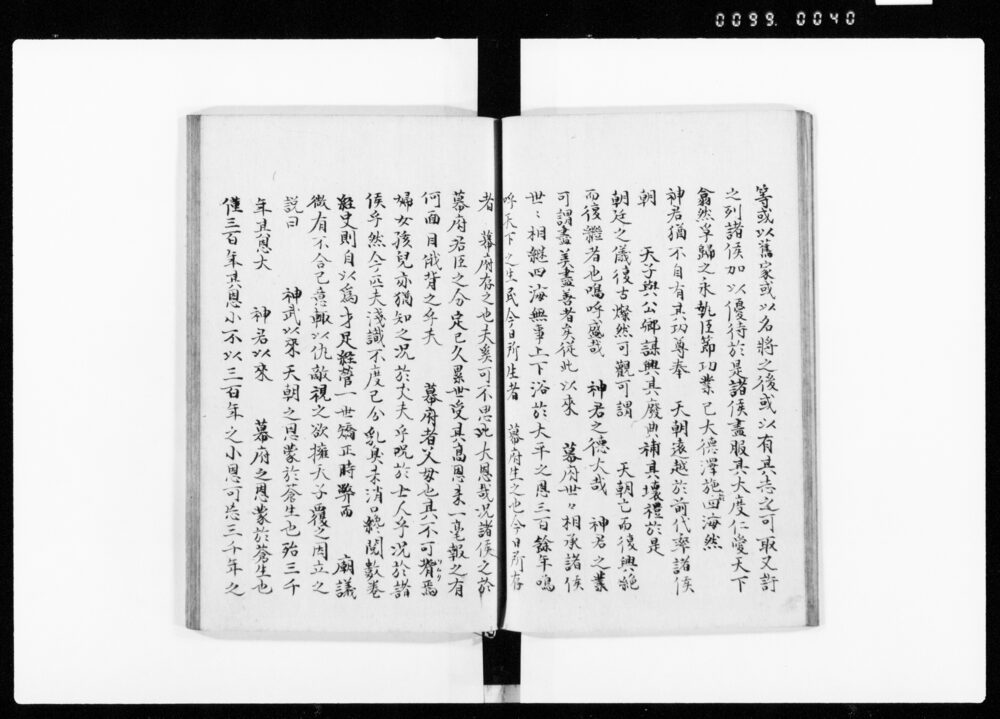 0099. 0040
等或以舊家或以名將之後或以有其志之可取又許
之列諸侯加以優待於是諸侯盡服其大度仁愛天下
翕然卒歸之永執臣節功業已大德澤施四海然
神君猶不自有其功尊奉 天朝遠越於前代率諸侯
朝 天子與公卿謀興其廢典補其壞禮於是
朝廷之儀復古燦然可觀可謂 天朝亡而復興絕
而復繼者也嗚呼盛哉 神君之德大哉 神君之業
可謂盡美盡善者矣從此以來 幕府世々相承諸侯
世々相繼四海無事上下浴於大平之恩三百餘年嗚
呼天下之生民今日所生者 幕府生之也今日所存
者 幕府存之也夫奚可不思此大恩哉況諸侯之於
幕府君臣之分定已久累世受其高恩未一毫報之有
何面目俄背之乎夫 幕府者父母也其不可背焉
ソムク
婦女孩兒亦猶知之況於丈夫乎況於士人乎況於諸
侯乎然今匹夫淺識不度己分乳臭未消口纔閱數卷
經史則自以爲才足經營一世矯正時弊而 廟議
微有不合己意輙以仇敵視之欲擁天子覆之因立之
說曰 神武以來天朝之恩蒙於蒼生也殆三千
年其恩大 神君以來 幕府之恩蒙於蒼生也
僅三百年其恩小不以三百年之小恩可忘三千年之